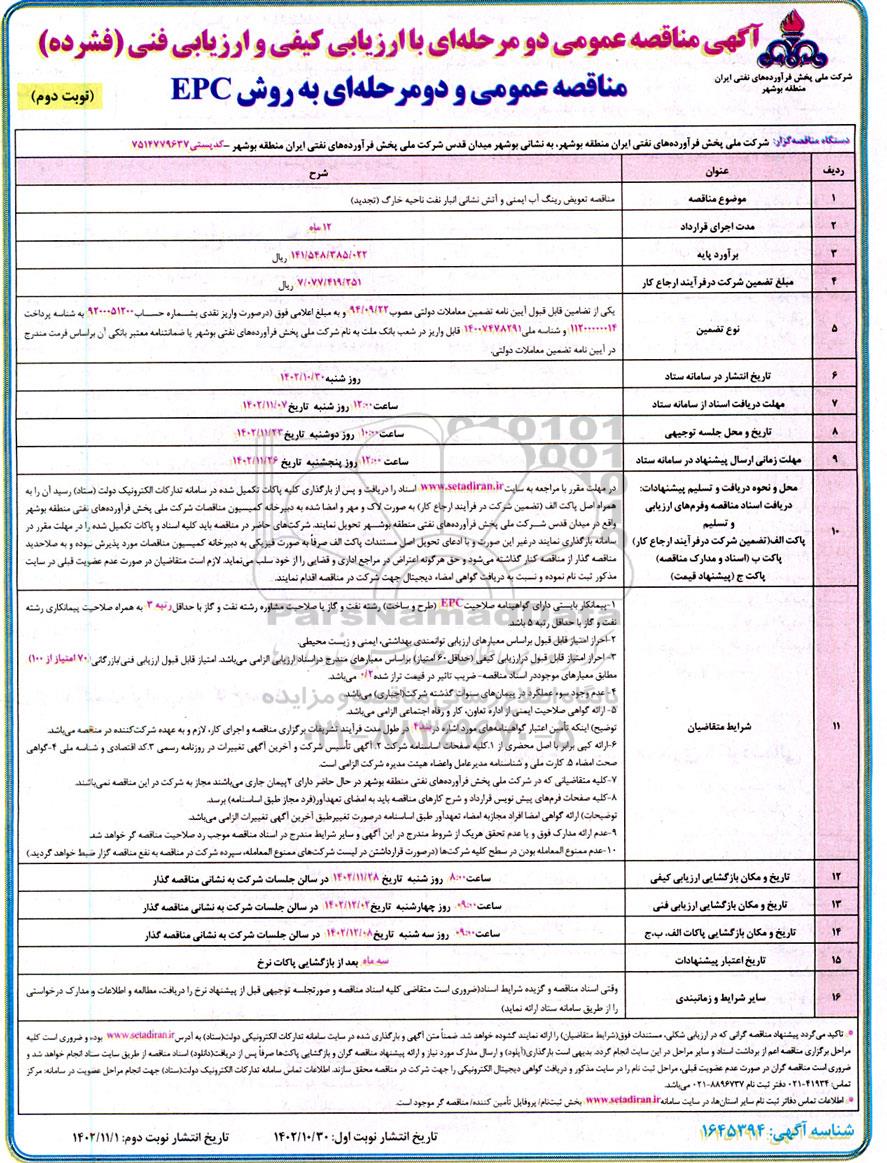 آگهی مناقصه عمومی دو مرحله‌ای با ارزیابی کیفی و ارزیابی فنی (فشرده)
مناقصه عمومی و دومرحله‌ای به روش EPC
(نوبت دوم)
شرکت ملی پخش فرآورده‌های نفتی ایران
منطقه بوشهر
دستگاه مناقصه‌گزار: شرکت ملی پخش فرآورده‌های نفتی ایران منطقه بوشهر، به نشانی بوشهر میدان قدس شرکت ملی پخش فرآورده‌های نفتی ایران منطقه بوشهر –کدپستی۷۵۱۴۷۷۹۶۳۷
ردیف عنوان شرح
۱ موضوع مناقصه مناقصه تعویض رینگ آب ایمنی و آتش نشانی انبار نفت ناحیه خارگ (تجدید)
۲ مدت اجرای قرارداد ۱۲ ماه
۳ برآورد پایه ۱۴۱/۵۴۸/۳۸۵/۰۲۲ ریال
۴ مبلغ تضمین شرکت درفرآیند ارجاع کار ۷/۰۷۷/۴۱۹/۲۵۱ ریال
۵ نوع تضمین یکی از تضامین قابل قبول آیین نامه تضمین معاملات دولتی مصوب۹۴/۰۹/۲۲ و به مبلغ اعلامی فوق (درصورت واریز نقدی بشـماره حساب۹۲۰۰۰۵۱۲۰۰ به شناسه پرداخت
۱۱۲۰۰۰۰۰۰۱۴ و شناسه ملی۱۴۰۰۷۴۷۸۲۹۱ قابل واریز در شعب بانک ملت به نام شرکت ملی پخش فرآورده‌های نفتی بوشهر یا ضمانتنامه معتبر بانکی آن براساس فرمت مندرج
در آیین نامه تضمین معاملات دولتی.
۶ تاریخ انتشار در سامانه ستاد روز شنبه ۱۴۰۲/۱۰/۳۰
۷ مهلت دریافت اسناد از سامانه ستاد ساعت۱۲:۰۰ روز شنبه تاریخ ۱۴۰۲/۱۱/۰۷
۸ تاریخ و محل جلسه توجیهی ساعت۱۰:۰۰ روز دوشنبه تاریخ ۱۴۰۲/۱۱/۲۳
۹ مهلت زمانی ارسال پیشنهاد در سامانه ستاد ساعت ۱۲:۰۰ روز پنجشنبه تاریخ ۱۴۰۲/۱۱/۲۶
۱۰ محل و نحوه دریافت و تسلیم پیشنهادات:
دریافت اسناد مناقصه وفرم‌های ارزیابی
و تسلیم
پاکت الف(تضمین شرکت درفرآیند ارجاع کار)
پاکت ب (اسناد و مدارک مناقصه)
پاکت ج (پیشنهاد قیمت)
در مهلت مقرر با مراجعه به سایت www.setadiran.ir اسناد را دریافت و پس از بارگذاری کلیه پاکات تکمیل شده در سامانه تدارکات الکترونیک دولت (ستاد) رسید آن را به
همراه اصل پاکت الف (تضمین شرکت در فرآیند ارجاع کار) به صورت لاک و مهر و امضا شده به دبیرخانه کمیسیون مناقصات شرکت ملی پخش فرآورده‌های نفتی منطقه بوشهر
واقع در میدان قدس شـرکت ملی پخش فرآورده‌های نفتی منطقه بوشـهر تحویل نمایند. شرکت‌های حاضر در مناقصه باید کلیه اسناد و پاکات تکمیل شده را در مهلت مقرر در
سامانه بارگذاری نمایند درغیر این صورت و با ادعای تحویل اصل مستندات پاکت الف صرفاً به صورت فیزیکی به دبیرخانه کمیسیون مناقصات مورد پذیرش نبوده و به صلاحدید
مناقصه گذار از مناقصه کنار گذاشته می‌شود و حق هرگونه اعتراض در مراجع اداری و قضایی را از خود سلب می‌نماید. لازم است متقاضیان در صورت عدم عضویت قبلی در سایت
مذکور ثبت نام نموده و نسبت به دریافت گواهی امضاء دیجیتال جهت شرکت در مناقصه اقدام نمایند.
۱۱ شرایط متقاضیان
۱-پیمانکار بایستی دارای گواهینامه صلاحیت EPC (طرح و ساخت) رشته نفت و گاز یا صلاحیت مشاوره رشته نفت و گاز با حداقل رتبه ۳ به همراه صلاحیت پیمانکاری رشته
نفت و گاز با حداقل رتبه ۵ باشد.
۲-احراز امتیاز قابل قبول براساس معیارهای ارزیابی توانمندی بهداشتی، ایمنی و زیست محیطی.
۳- احراز امتیاز قابل قبول درارزیابی کیفی (حداقل ۶۰ امتیاز) براساس معیارهای مندرج دراسناد ارزیابی الزامی می‌باشد. امتیاز قابل قبول ارزیابی فنی بازرگانی (۷۰ امتیاز از ۱۰۰)
مطابق معیارهای موجوددر اسناد مناقصه- ضریب تاثیر در قیمت تراز شده ۰/۲ می‌باشد.
۴-عدم وجود سوء عملکرد در پیمان‌های سنوات گذشته شرکت(اجباری) می‌باشد.
۵-ارائه گواهی صلاحیت ایمنی از اداره تعاون، کار و رفاه اجتماعی الزامی می‌باشد.
توضیح) اینکه تأمین اعتبار گواهینامه‌های مورد اشاره دربند۴ در طول مدت فرآیند تشریفات برگزاری مناقصه و اجرای کار، لازم و به عهده شرکت‌کننده در مناقصه می‌باشد.
۶-ارائه کپی برابر با اصل محضری از ۱.کلیه صفحات اساسنامه شرکت ۲. آگهی تأسیس شرکت و آخرین آگهی تغییرات در روزنامه رسمی ۳.کد اقتصادی و شناسه ملی ۴-گواهی
صحت امضاء ۵. کارت ملی و شناسنامه مدیرعامل واعضاء هیئت مدیره شرکت الزامی است.
۷-کلیه متقاضیانی که در شرکت ملی پخش فرآورده‌های نفتی منطقه بوشهر در حال حاضر دارای ۲پیمان جاری می‌باشند مجاز به شرکت در این مناقصه نمی‌باشند.
۸-کلیه صفحات فرم‌های پیش نویس قرارداد و شرح کارهای مناقصه باید به امضای تعهدآور(فرد مجاز طبق اساسنامه) برسد.
توضیحات) ارائه گواهی امضا افراد مجازبه امضاء تعهدآور طبق اساسنامه درصورت تغییرطبق آخرین آگهی تغییرات الزامی می‌باشد.
۹-عدم ارائه مدارک فوق و یا عدم تحقق هریک از شروط مندرج در این آگهی و سایر شرایط مندرج در اسناد مناقصه موجب رد صلاحیت مناقصه گر خواهد شد.
۱۰-عدم ممنوع المعامله بودن در سطح کلیه شرکت‌ها (درصورت قرارداشتن در لیست شرکت‌های ممنوع المعامله، سپرده شرکت در مناقصه به نفع مناقصه گزار ضبط خواهد گردید.)
۱۲ تاریخ و مکان بازگشایی ارزیابی کیفی ساعت۸:۰۰ روز شنبه تاریخ ۱۴۰۲/۱۱/۲۸ در سالن جلسات شرکت به نشانی مناقصه گذار
۱۳ تاریخ و مکان بازگشایی ارزیابی فنی ساعت۰۹:۰۰ روز چهارشنبه تاریخ۱۴۰۲/۱۲/۰۲ در سالن جلسات شرکت به نشانی مناقصه گذار
۱۴ تاریخ و مکان بازگشایی پاکات الف، ب،ج ساعت۰۹:۰۰ روز سه شنبه تاریخ ۱۴۰۲/۱۲/۰۸ در سالن جلسات شرکت به نشانی مناقصه گذار
۱۵ تاریخ اعتبار پیشنهادات سه ماه بعد از بازگشایی پاکات نرخ
۱۶ سایر شرایط و زمانبندی وقتی اسناد مناقصه و گزیده شرایط اسناد(ضروری است متقاضی کلیه اسناد مناقصه و صورتجلسه توجیهی قبل از پیشنهاد نرخ را دریافت، مطالعه و اطلاعات و مدارک درخواستی
را از طریق سامانه ستاد ارائه نماید)
* تاکید می‌گردد پیشنهاد مناقصه گرانی که در ارزیابی شکلی، مستندات فوق(شرایط متقاضیان) را ارائه نمایند گشوده خواهد شد. ضمناً متن آگهی و بارگذاری شده در سایت سامانه تدارکات الکترونیکی دولت(ستاد) به آدرس www.setadiran.ir بوده و ضروری است کلیه
مراحل برگزاری مناقصه اعم از برداشت اسناد و سایر مراحل در این سایت انجام گردد. بدیهی است بارگذاری(آپلود) و ارسال مدارک مورد نیاز و ارائه پیشنهاد مناقصه گران و بازگشایی پاکت‌ها صرفاً پس از دریافت(دانلود) اسناد مناقصه از طریق سایت ستاد انجام خواهد شد و
ضروری است مناقصه گران در صورت عدم عضویت قبلی، مراحل ثبت نام را در سایت مذکور و دریافت گواهی دیجیتال الکترونیکی را جهت شرکت در مناقصه محقق سازند. اطلاعات تماس سامانه تدارکات الکترونیک دولت(ستاد) جهت انجام مراحل عضویت در سامانه: مرکز
تماس: ۴۱۹۳۴-۰۲۱ دفتر ثبت نام ۸۸۹۶۷۳۷-۰۲۱ می‌باشد.
* اطلاعات تماس دفاتر ثبت نام سایر استان‌ها، در سایت سامانه www.setadiran.ir بخش ثبت‌نام/ پروفایل تأمین کننده/ مناقصه گر موجود است.
شناسه آگهی: ۱۶۴۵۳۹۴
تاریخ انتشار نوبت اول: ۱۴۰۲/۱۰/۳۰ تاریخ انتشار نوبت دوم: ۱۴۰۲/۱۱/۱
ParsNamadData